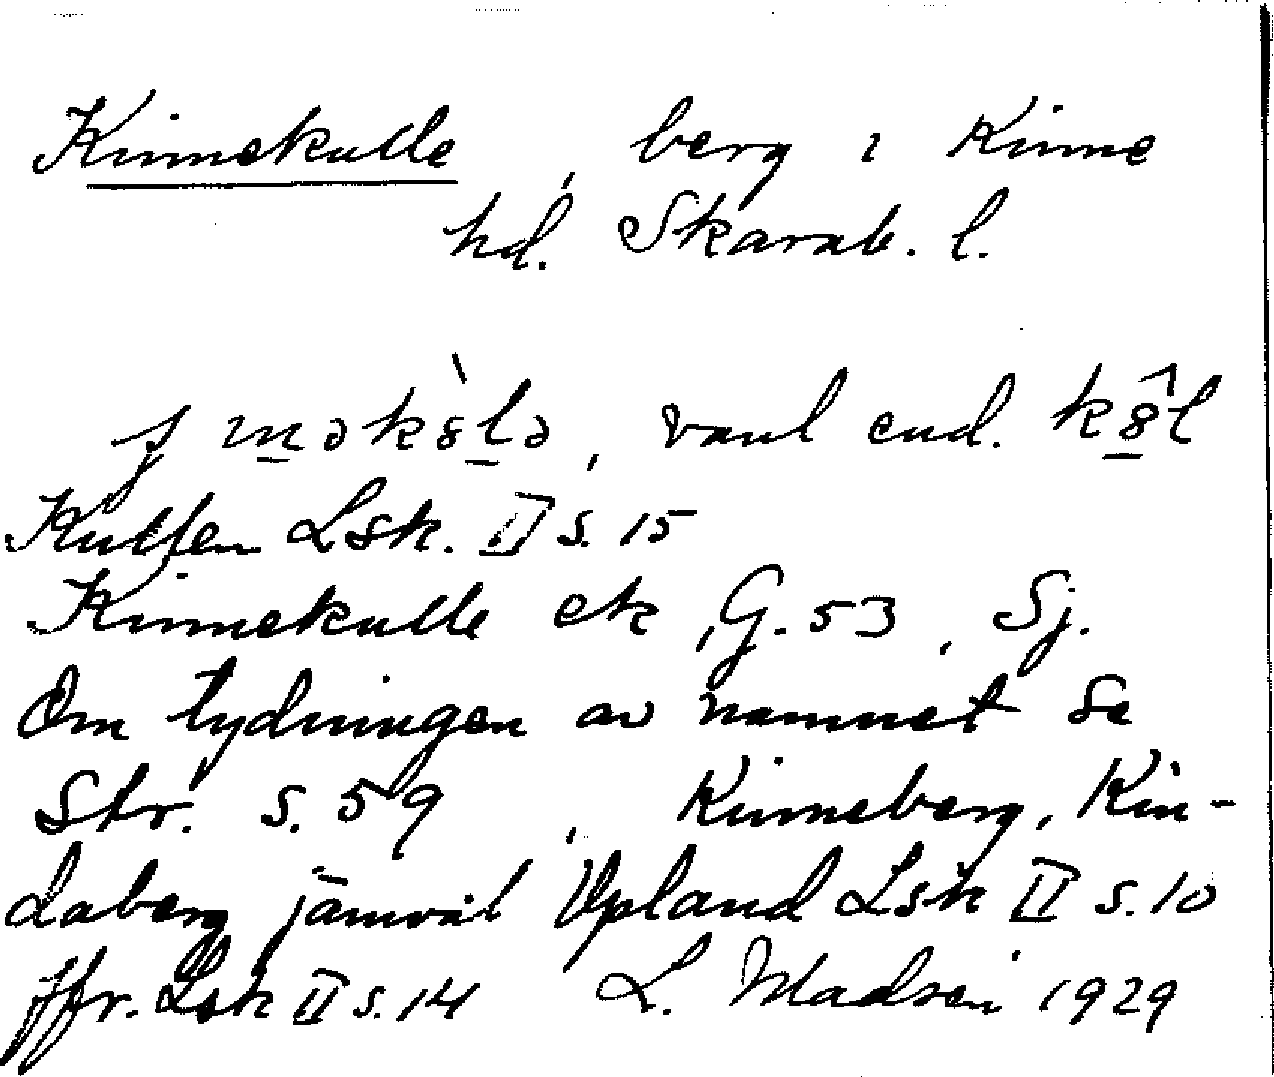 Kinnekulle, berg i Kinne
hd. Skarab. l.
vanl end.
Kullen Lsk. II s. 15
Kinnekulle ek, G. 53, Sj.
Om tydningen av namnet se
Str. s. 59, Kinneberg, Kin-
daberg jämväl Upland Lsk II s. 10
jfr. Lsk II s. 14 L. Madsen 1929